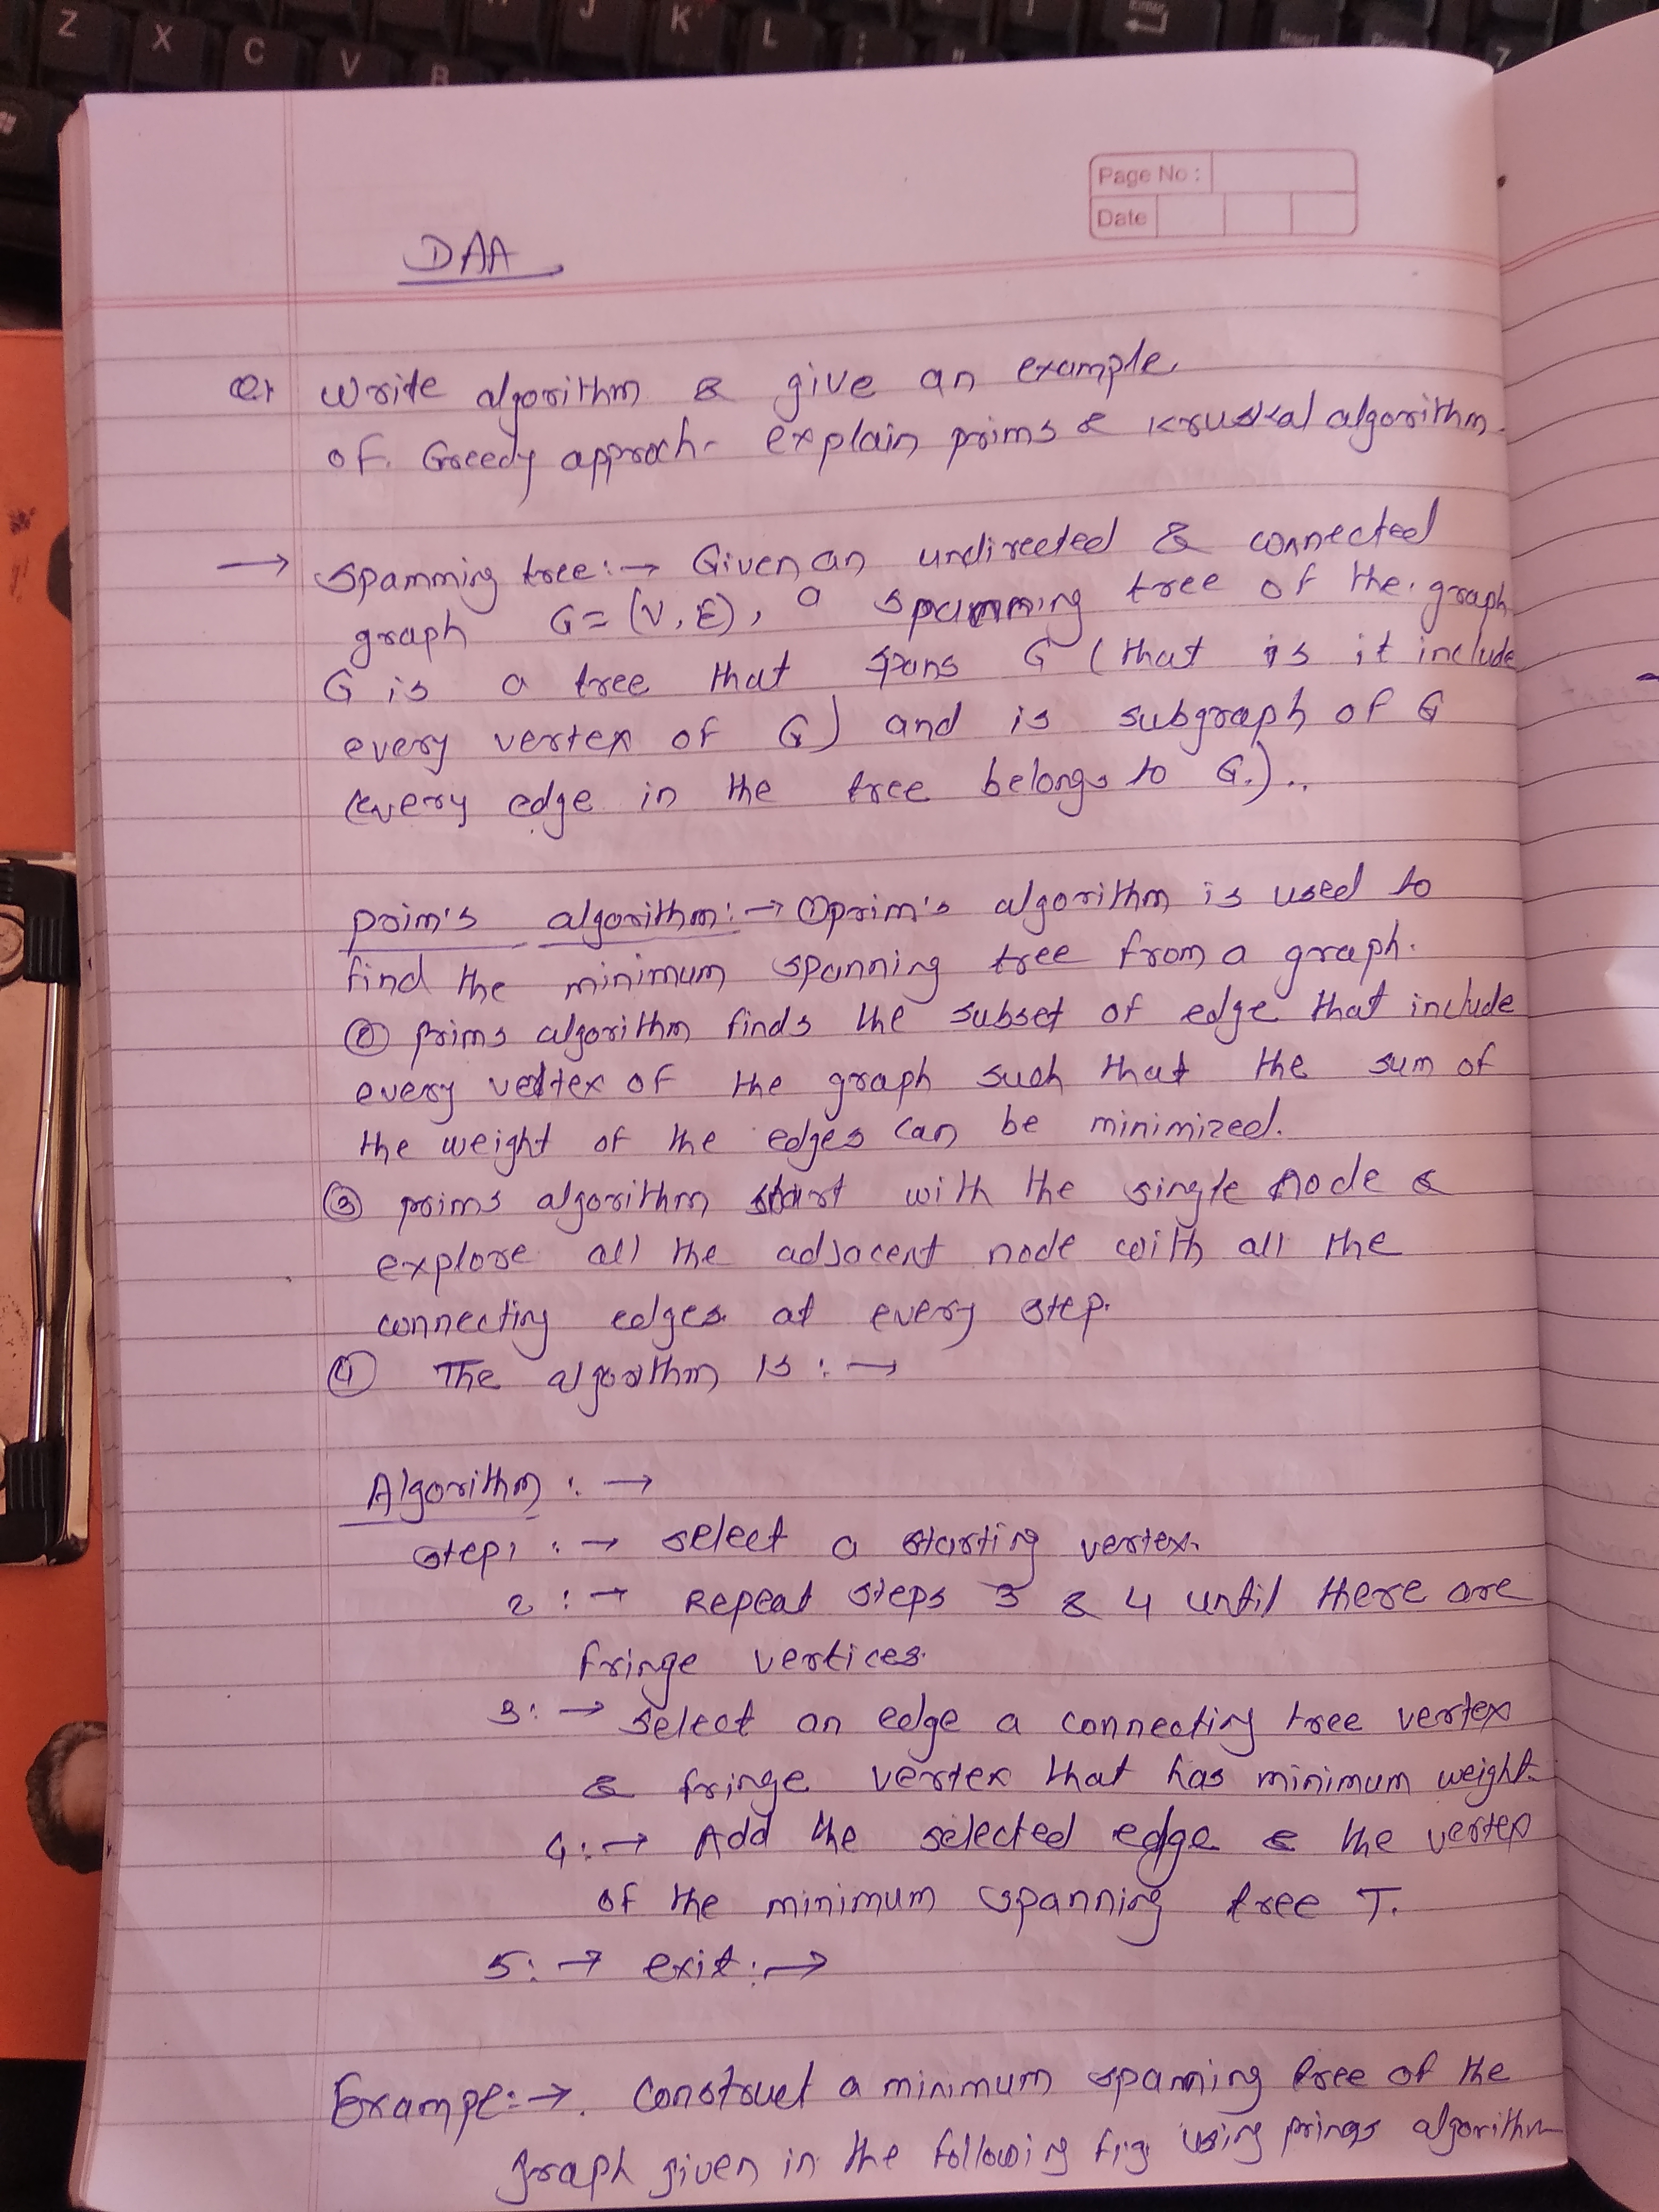 Z X C V B J K L Enter Insert 7
Page No :
Date
DAA
Q1 Write algorithm & give an example
of Greedy approch- explain prims & kruskal algorithm.
→ Spamming tree :→ Given an undirected & connected
graph G = (V, E), a spanning tree of the graph
G is a tree that spans G (that is it include
every vertex of G) and is subgraph of G
(every edge in the tree belongs to G.)..
prim's algorithm :→ ① prim's algorithm is used to
find the minimum spanning tree from a graph.
② prims algorithm finds the subset of edge that include
every vertex of the graph such that the sum of
the weight of the edges can be minimized.
③ prims algorithm start with the single node &
explore all the adjacent node with all the
connecting edges at every step.
④ The algorithm is :→
Algorithm :→
Step 1 :→ select a starting vertex.
2 :→ Repeat steps 3 & 4 until there are
fringe vertices.
3 :→ Select an edge a connecting tree vertex
& fringe vertex that has minimum weight.
4 :→ Add the selected edge & the vertex
of the minimum spanning tree T.
5 :→ exit :→
Exampe :→. Construct a minimum spanning tree of the
graph given in the following fig. using prings algorithm